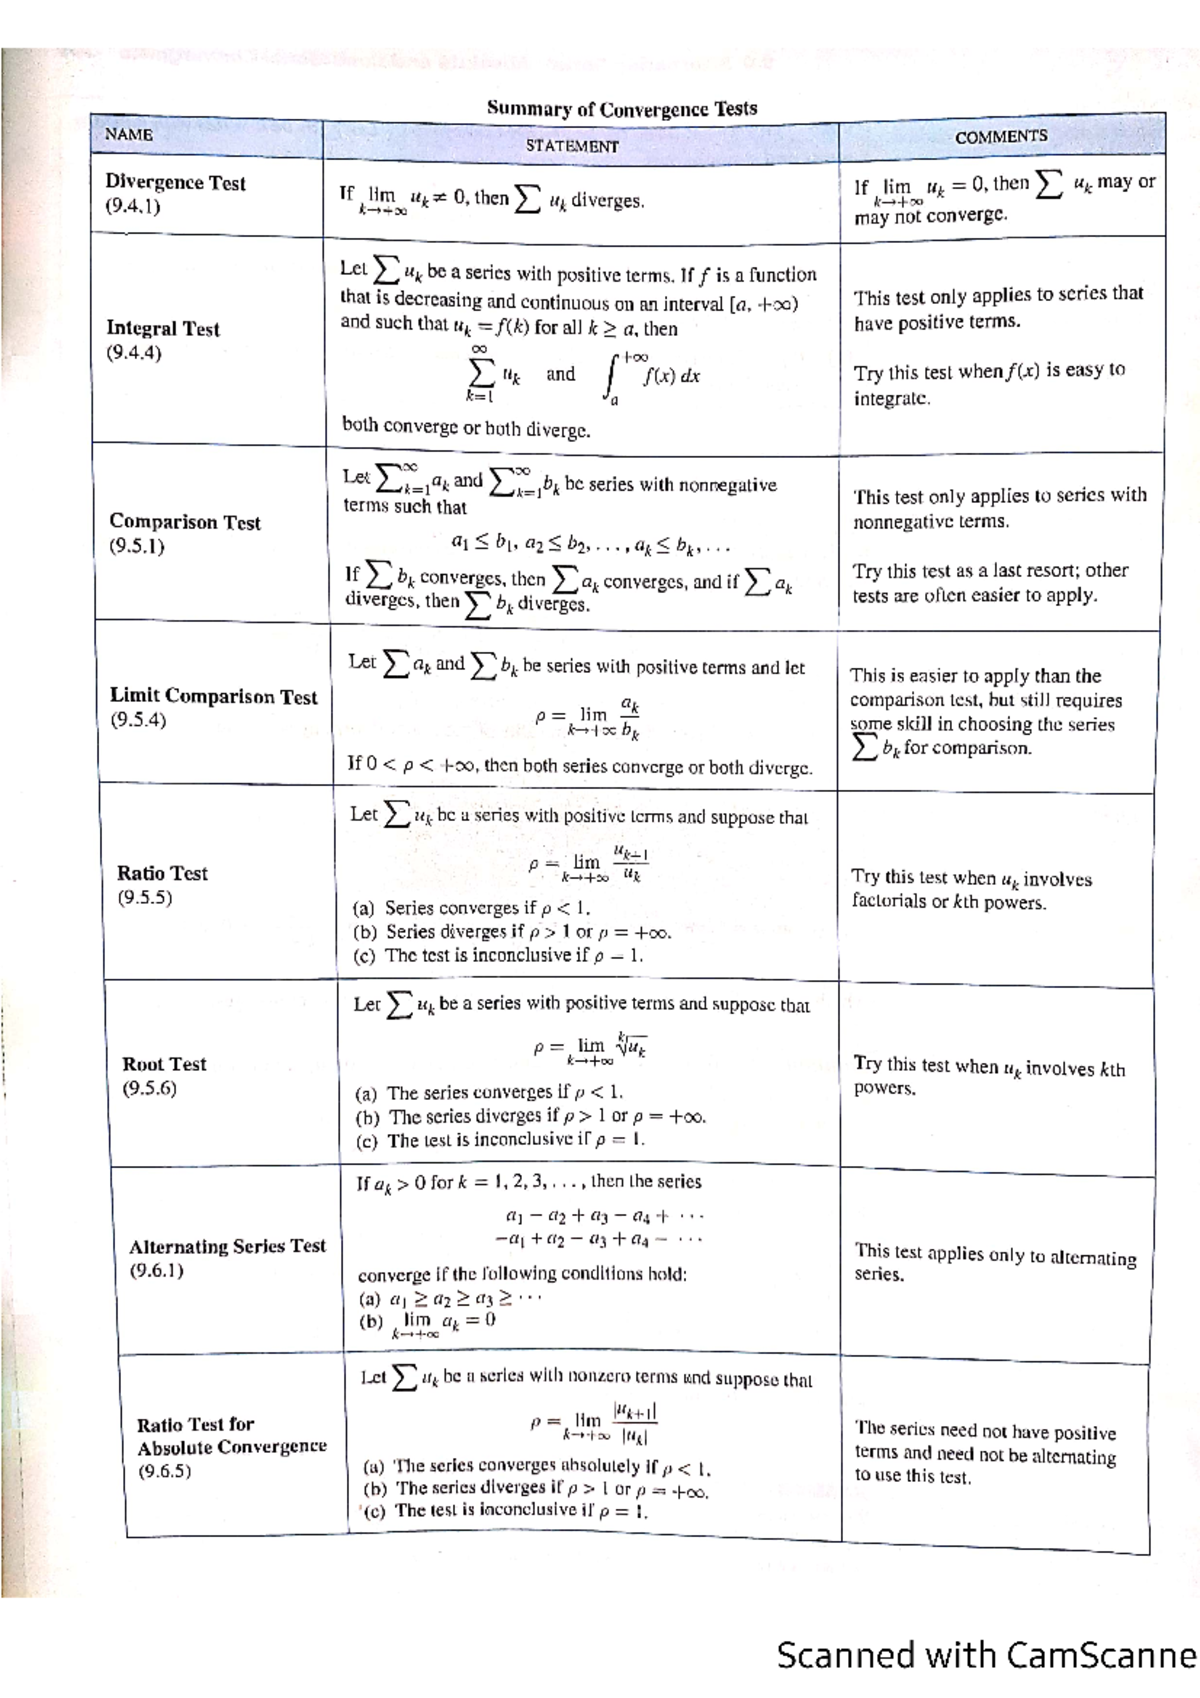 Summary of Convergence Tests
NAME
STATEMENT
COMMENTS
Divergence Test
(9.4.1)
If lim k→+∞ uk ≠ 0, then ∑ uk diverges.
If lim k→+∞ uk = 0, then ∑ uk may or
may not converge.
Integral Test
(9.4.4)
Let ∑ uk be a series with positive terms. If f is a function
that is decreasing and continuous on an interval [a, +∞)
and such that uk = f(k) for all k ≥ a, then
∞∑k=1 uk and ∫a+∞ f(x) dx
both converge or both diverge.
This test only applies to series that
have positive terms.
Try this test when f(x) is easy to
integrate.
Comparison Test
(9.5.1)
Let ∑∞k=1 ak and ∑∞k=1 bk be series with nonnegative
terms such that
a1 ≤ b1, a2 ≤ b2, . . . , ak ≤ bk, . . .
If ∑ bk converges, then ∑ ak converges, and if ∑ ak
diverges, then ∑ bk diverges.
This test only applies to series with
nonnegative terms.
Try this test as a last resort; other
tests are often easier to apply.
Limit Comparison Test
(9.5.4)
Let ∑ ak and ∑ bk be series with positive terms and let
ρ = lim k→+∞ ak/bk
If 0 < ρ < +∞, then both series converge or both diverge.
This is easier to apply than the
comparison test, but still requires
some skill in choosing the series
∑ bk for comparison.
Ratio Test
(9.5.5)
Let ∑ uk be a series with positive terms and suppose that
ρ = lim k→+∞ uk+1/uk
(a) Series converges if ρ < 1.
(b) Series diverges if ρ > 1 or ρ = +∞.
(c) The test is inconclusive if ρ = 1.
Try this test when uk involves
factorials or kth powers.
Root Test
(9.5.6)
Let ∑ uk be a series with positive terms and suppose that
ρ = lim k→+∞ k√uk
(a) The series converges if ρ < 1.
(b) The series diverges if ρ > 1 or ρ = +∞.
(c) The test is inconclusive if ρ = 1.
Try this test when uk involves kth
powers.
Alternating Series Test
(9.6.1)
If ak > 0 for k = 1, 2, 3, . . . , then the series
a1 − a2 + a3 − a4 + · · ·
−a1 + a2 − a3 + a4 − · · ·
converge if the following conditions hold:
(a) a1 ≥ a2 ≥ a3 ≥ · · ·
(b) lim k→+∞ ak = 0
This test applies only to alternating
series.
Ratio Test for
Absolute Convergence
(9.6.5)
Let ∑ uk be a series with nonzero terms and suppose that
ρ = lim k→+∞ |uk+1|/|uk|
(a) The series converges absolutely if ρ < 1.
(b) The series diverges if ρ > 1 or ρ = +∞.
(c) The test is inconclusive if ρ = 1.
The series need not have positive
terms and need not be alternating
to use this test.
Scanned with CamScanne